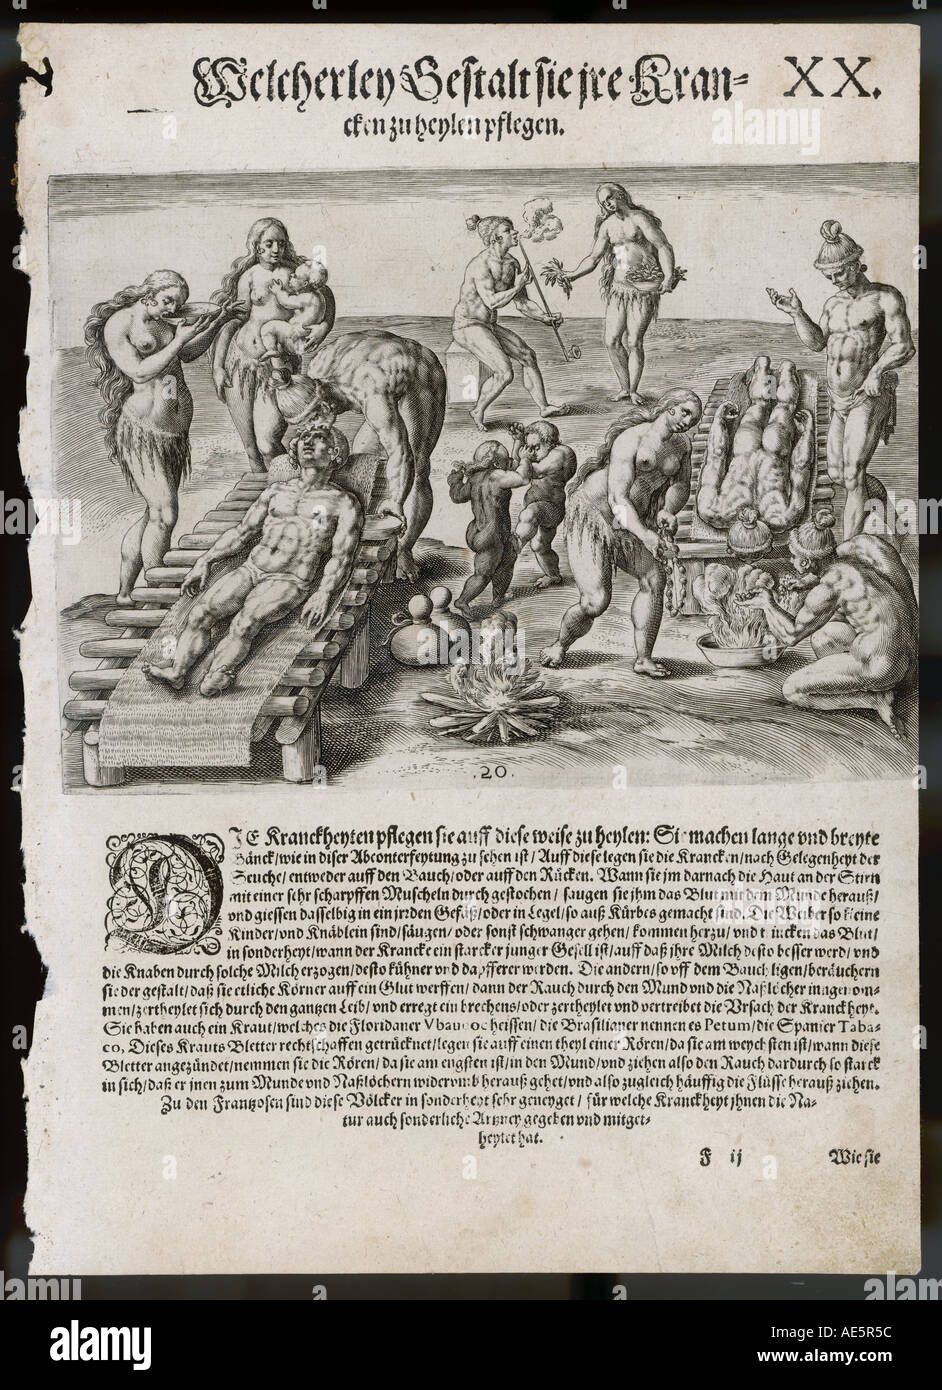 Welcherley Gestalt sie jre Kran- XX.
cken zu heylen pflegen.
.20.
DIE Kranckheyten pflegen sie auff diese weise zu heylen: Sie machen lange vnd breyte
Bänck/wie in diser Abconterfeytung zu sehen ist/Auff diese legen sie die Krancken/nach Gelegenheyt der
Seuche/entweder auff den Bauch/oder auff den Rücken. Wann sie jm darnach die Haut an der Stirn
mit einer sehr scharpffen Muscheln durch gestochen/saugen sie jhm das Blut mit dem Munde herauß/
vnd giessen dasselbig in ein jrden Gefäß/oder in Legel/so auß Kürbes gemacht sind. Die Weiber so kleine
Kinder/vnd Knäblein sind/säugen/oder sonst schwanger gehen/kommen herzu/vnd trincken das Blut/
in sonderheyt/wann der Krancke ein starcker junger Gesell ist/auff daß jhre Milch desto besser werd/vnd
die Knaben durch solche Milch erzogen/desto kühner vnd dapfferer werden. Die andern/so vff dem Bauch ligen/beräuchern
sie der gestalt/daß sie etliche Körner auff ein Glut werffen/dann der Rauch durch den Mund vnd die Naßlöcher eingenom-
men/zertheylet sich durch den gantzen Leib/vnd erregt ein brechens/oder zertheylet vnd vertreibet die Vrsach der Kranckheyt.
Sie haben auch ein Kraut/welches die Floridaner heissen/die Brasilianer nennen es Petum/die Spanier Taba-
co, Dieses Krauts Bletter rechtschaffen getrücknet/legen sie auff einen theyl einer Rören/da sie am weychsten ist/wann diese
Bletter angezündet/nemmen sie die Rören/da sie am engsten ist/in den Mund/vnd ziehen also den Rauch dardurch so starck
in sich/daß er jnen zum Munde vnd Naßlöchern widerumb herauß gehet/vnd also zugleich häuffig die Flüsse herauß ziehen.
Zu den Frantzosen sind diese Völcker in sonderheyt sehr geneyget/für welche Kranckheyt jhnen die Na-
tur auch sonderliche Artzney gegeben vnd mitget-
heylet hat.
F ij Wie sie
alamy
alamy
Image ID: AE5R5C
www.alamy.com